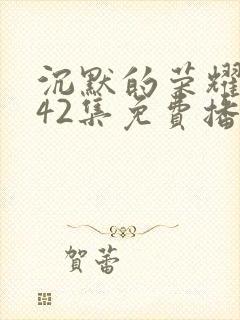 沉默的荣耀
42集免費播
賀蕾